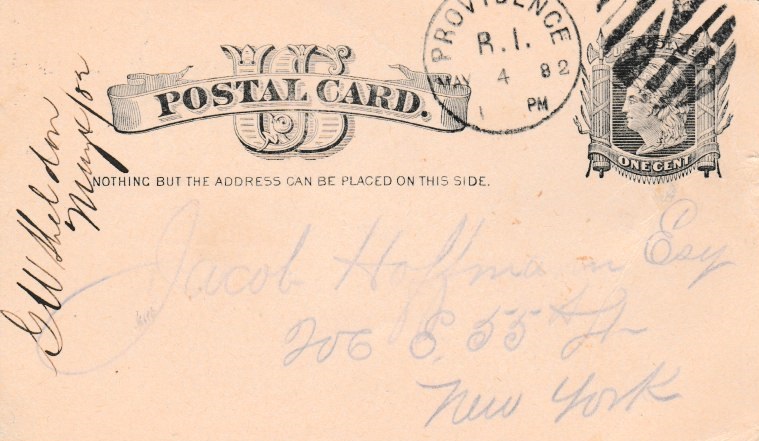 PROVIDENCE
R. I.
MAY 4 82
1 PM
U.S.
POSTAL CARD.
ONE CENT
NOTHING BUT THE ADDRESS CAN BE PLACED ON THIS SIDE.
G W Sheldon
May 4/82
Jacob Hoffman Esq
206 E. 55th St
New York